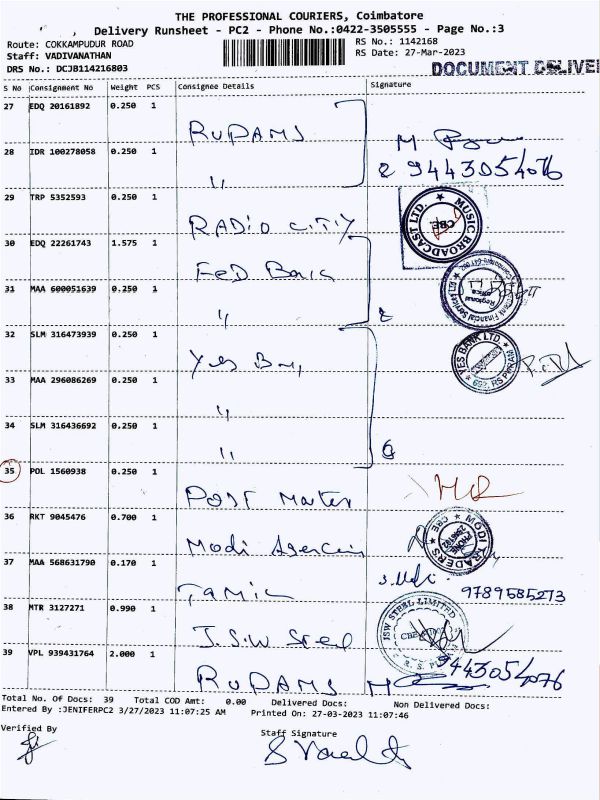 THE PROFESSIONAL COURIERS, Coimbatore
Delivery Runsheet - PC2 - Phone No.:0422-3505555 - Page No.:3
Route: COKKAMPUDUR ROAD
RS No.: 1142168
Staff: VADIVANATHAN
RS Date: 27-Mar-2023
DRS No.: DCJB114216803
DOCUMENT DELIVE
S No Consignment No Weight PCS Consignee Details Signature
27 EDQ 20161892 0.250 1
RUPAMS
28 IDR 100278058 0.250 1
9443054076
29 TRP 5352593 0.250 1
RADIO CITY
MUSIC BROADCAST LTD. CBE
30 EDQ 22261743 1.575 1
FED Bank
31 MAA 600051639 0.250 1
32 SLM 316473939 0.250 1
Yes Ban
YES BANK LTD.
33 MAA 296086269 0.250 1
34 SLM 316436692 0.250 1
35 POL 1560938 0.250 1
Post Master
36 RKT 9045476 0.700 1
Modi Agencies
MODI TRADERS CBE
37 MAA 568631790 0.170 1
Tamil
9789585273
38 MTR 3127271 0.990 1
J.S.W Steel
JSW STEEL LIMITED
39 VPL 939431764 2.000 1
RUPAMS
9443054076
Total No. Of Docs: 39 Total COD Amt: 0.00 Delivered Docs: Non Delivered Docs:
Entered By :JENIFERPC2 3/27/2023 11:07:25 AM Printed On: 27-03-2023 11:07:46
Verified By
Staff Signature